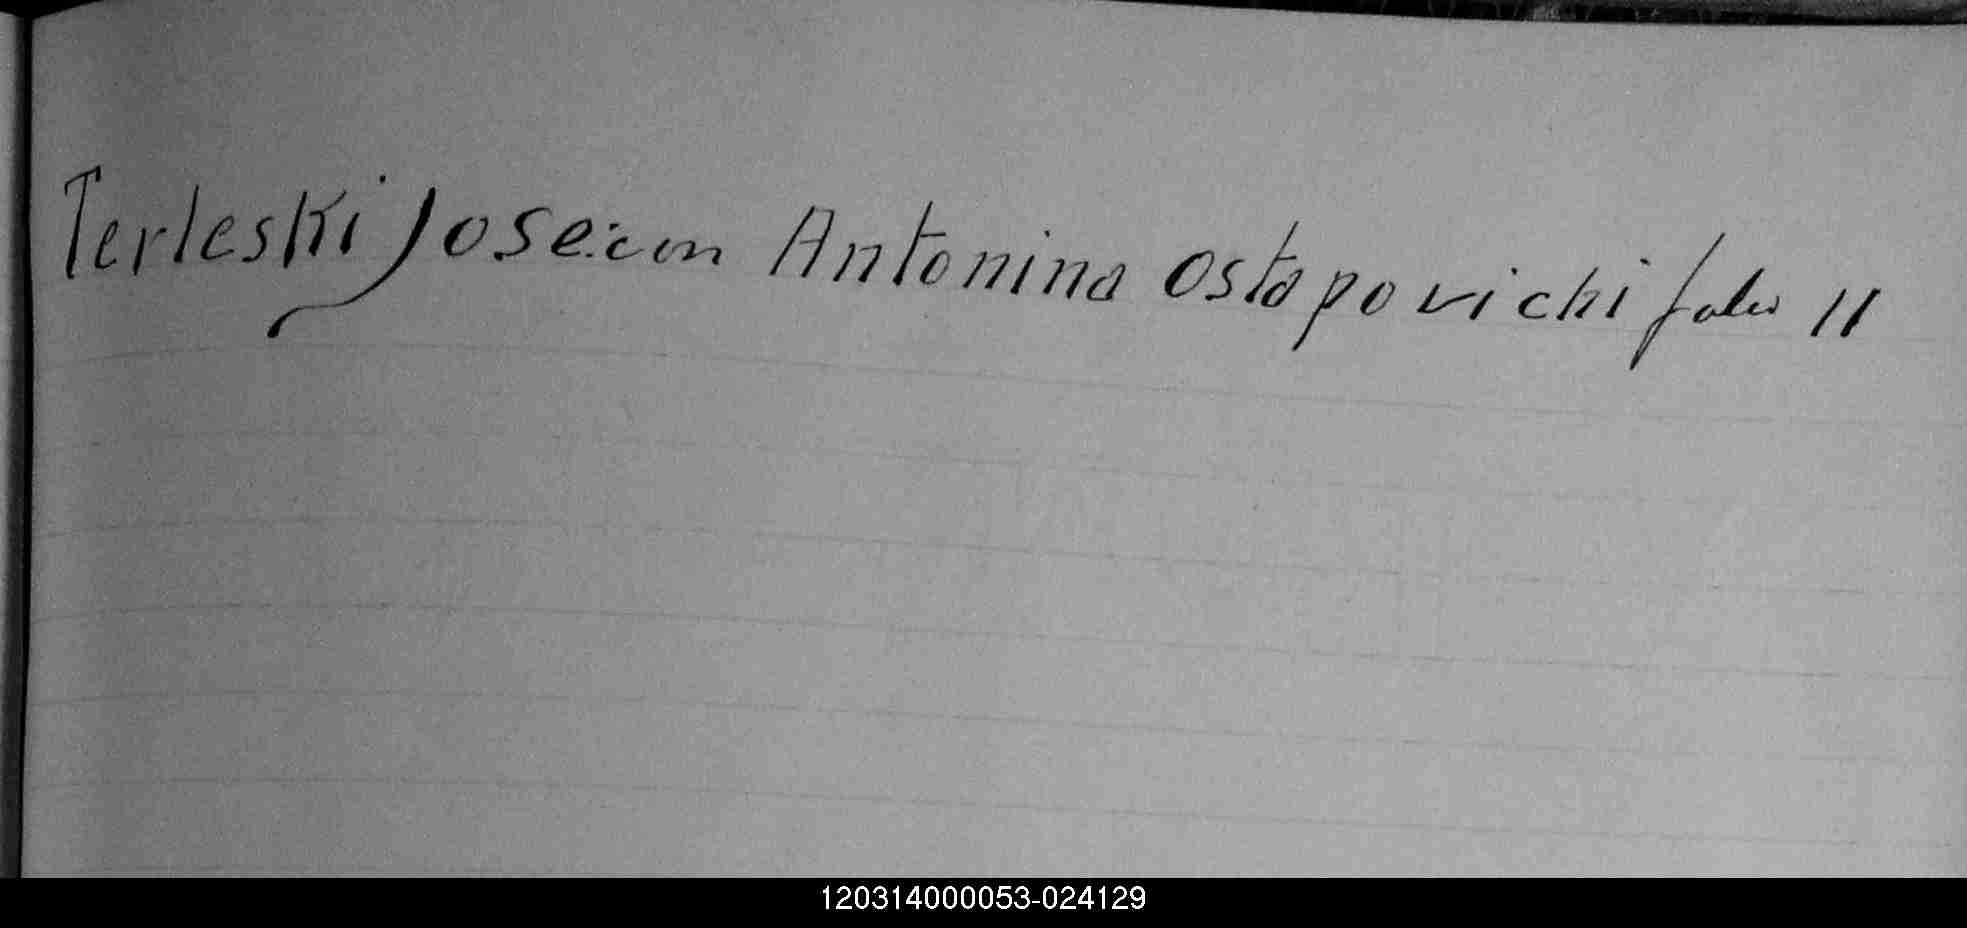 Terleski José: con Antonina Ostapovichi folio 11
120314000053-024129